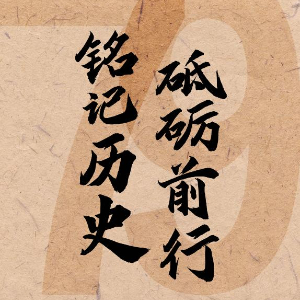 铭记历史
砥砺前行
79